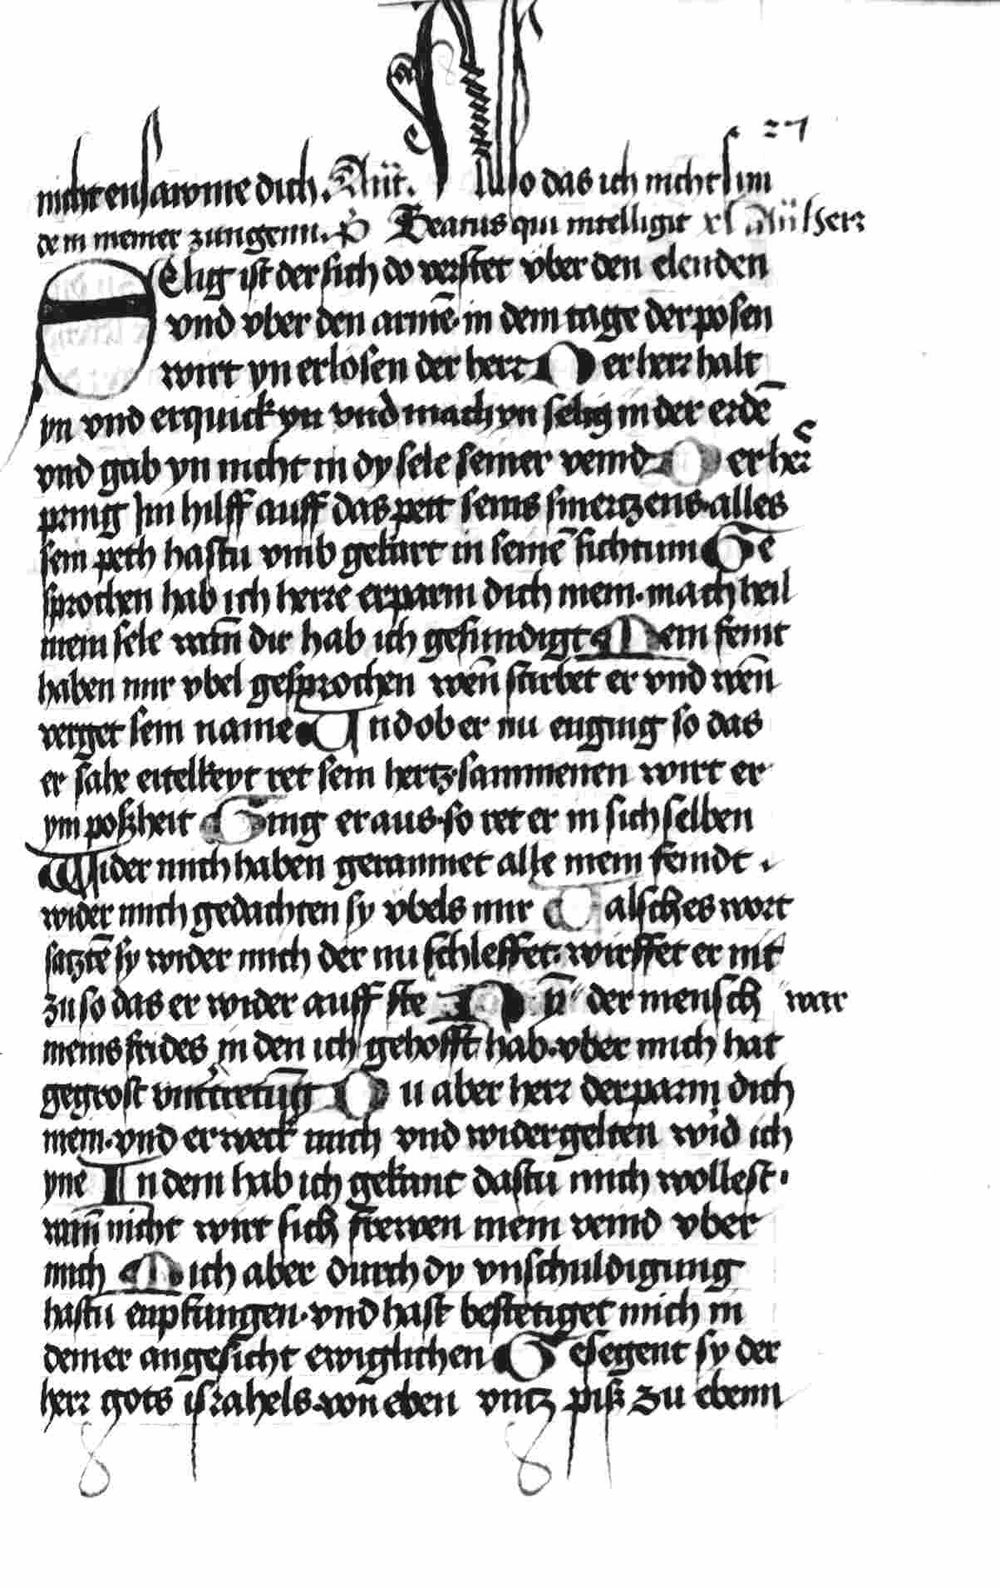 27
nicht ensawme dich. Antͥ. Also das ich nicht sun
de in meiner zungenn. p̄s Beatus qui intelligit xl Antͥ Herr
SElig ist der sich do verstet vber den elenden
vnd vber den armē· in dem tage der posen
wirt yn erlosen der herr Der herr halt
yn vnd erquick yn vnd mach yn selig in der erdē
vnd gab yn nicht in dy sele seiner veind Der herr
pring Im hilff auff das pett seins smertzens· alles
sein peth hastu vmb gekart in seinē sichtum Ge
sprochen hab ich herre erparm dich mein· mach heil
mein sele wān dir hab ich gesundigt Mein feint
haben mir vbel gesprochen wen̄ stirbet er vnd wen̄
verget sein name Vnd ob er nu enging so das
er sahe eitelkeyt ret sein hertz· sammenen wirt er
ym poßheit Ging er aus· so ret er in sich selben
Wider mich haben gerawmet alle mein feindt ·
wider mich gedachten sy vbels mir Valsches wort
satztē sy wider mich der nu schleffet· wirffet er nit
zu so das er wider auff ste Nv̄ der mensch war
meins frides in den ich gehofft hab· vber mich hat
gegrost vnttretūg Du aber herr derparm dich
mein· vnd erweck mich vnd widergelten wid ich
yne In dem hab ich gekant dastu mich wollest·
wān nicht wirt sich frewen mein veind vber
mich Mich aber durch dy vnschuldigung
hastu enpfangen· vnd hast bestetiget mich in
deiner angesicht ewiglichen Gesegent sy der
herr gots israhels· von eben vntz piß zu ebenn